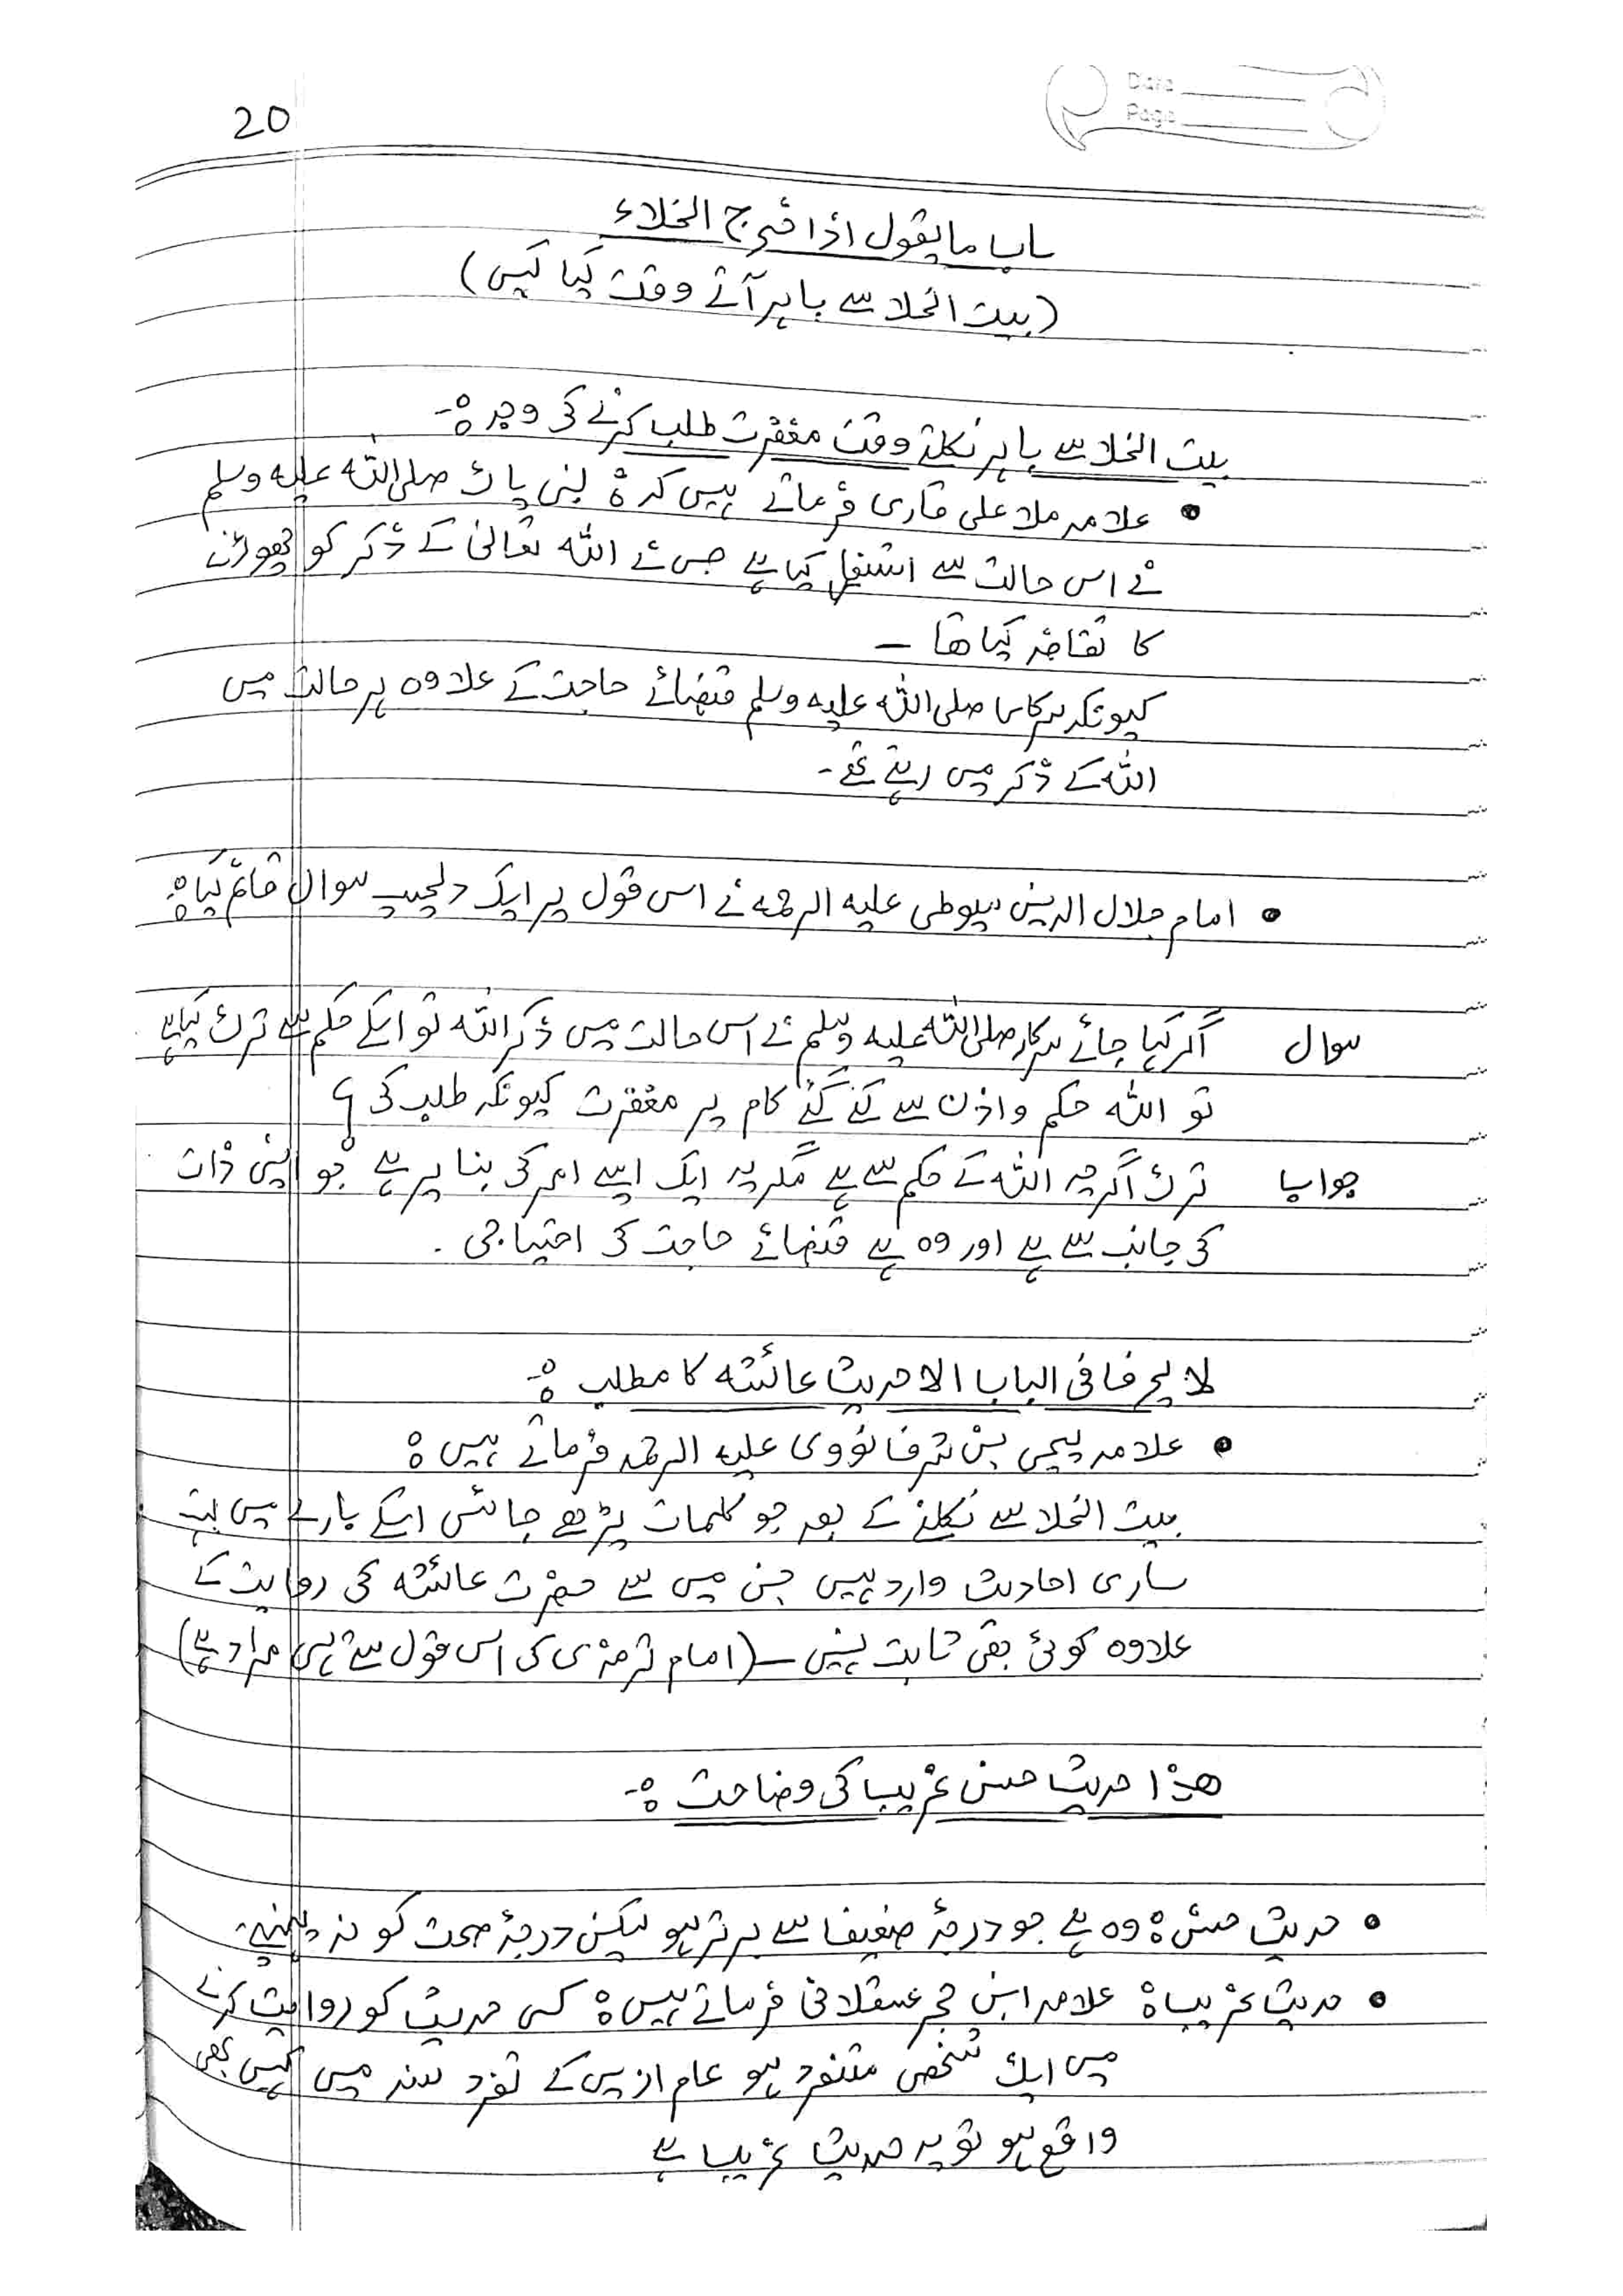 Date
Page
20
باب ما یقول اذا خرج الخلاء
(بیت الخلا سے باہر آتے وقت کیا کہیں)
بیت الخلا سے باہر نکلتے وقت مغفرت طلب کرنے کی وجہ :-
• علامہ ملا علی قاری فرماتے ہیں کہ : نبی پاک صلی اللہ علیہ وسلم
نے اس حالت سے کیا ہے جس نے اللہ تعالیٰ کے ذکر کو چھوڑنے
کا تقاضہ کیا تھا –
کیونکہ سرکار صلی اللہ علیہ وسلم قضائے حاجت کے علاوہ ہر حالت میں
اللہ کے ذکر میں رہتے تھے -
• امام جلال الدین سیوطی علیہ الرحمہ نے اس قول پر ایک دلچسپ سوال قائم کیا :
سوال اگر کہا جائے سرکار صلی اللہ علیہ وسلم نے اس حالت میں ذکر اللہ تو اسکے حکم سے ترک کیا ہے
تو اللہ حکم و اذن سے کئے گئے کام پر مغفرت کیونکہ طلب کی ؟
جواب ترک اگرچہ اللہ کے حکم سے ہے مگر یہ ایک ایسے امر کی بنا پر ہے جو اپنی ذات
کی جانب سے ہے اور وہ ہے قضائے حاجت کی احتیاجی .
لا یعرف فی الباب الا حدیث عائشہ کا مطلب :-
• علامہ یحیی بن شرف نووی علیہ الرحمہ فرماتے ہیں :
بیت الخلا سے نکلنے کے بعد جو کلمات پڑھے جائیں اسکے بارے میں بہت
ساری احادیث وارد ہیں جن میں سے حضرت عائشہ کی روایت کے
علاوہ کوئی بھی ثابت نہیں – (امام ترمذی کی اس قول سے یہی مراد ہے)
ھذا حدیث حسن غریب کی وضاحت :-
• حدیث حسن : وہ ہے جو درجۂ ضعیف سے برتر ہو لیکن درجۂ صحت کو نہ پہنچے -
• حدیث غریب : علامہ ابن حجر عسقلانی فرماتے ہیں : کسی حدیث کو روایت کرنے
میں ایک شخص متفرد ہو عام ازیں کے تفرد سند میں کہیں بھی
واقع ہو تو یہ حدیث غریب ہے